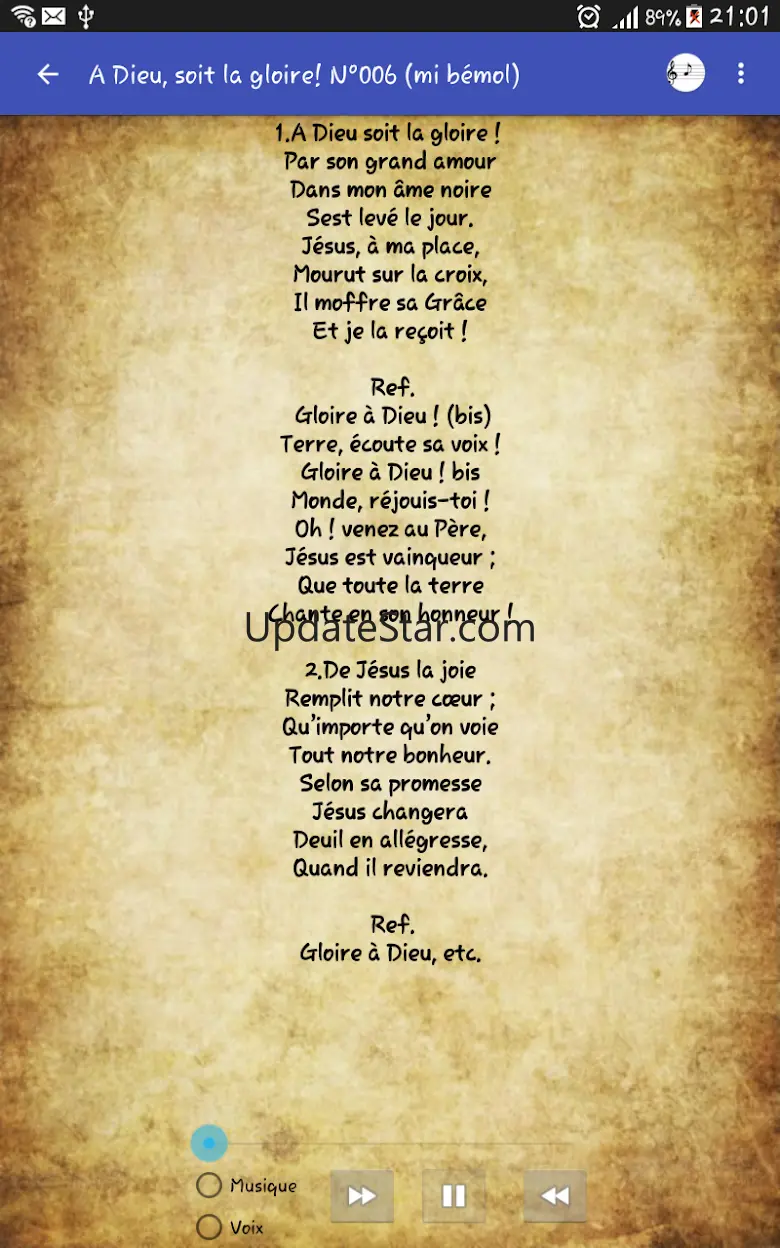 89% 21:01
A Dieu, soit la gloire! N°006 (mi bémol)
1.A Dieu soit la gloire !
Par son grand amour
Dans mon âme noire
Sest levé le jour.
Jésus, à ma place,
Mourut sur la croix,
Il moffre sa Grâce
Et je la reçoit !
Ref.
Gloire à Dieu ! (bis)
Terre, écoute sa voix !
Gloire à Dieu ! bis
Monde, réjouis-toi !
Oh ! venez au Père,
Jésus est vainqueur ;
Que toute la terre
Chante en son honneur !
UpdateStar.com
2.De Jésus la joie
Remplit notre cœur ;
Qu'importe qu'on voie
Tout notre bonheur.
Selon sa promesse
Jésus changera
Deuil en allégresse,
Quand il reviendra.
Ref.
Gloire à Dieu, etc.
Musique
Voix